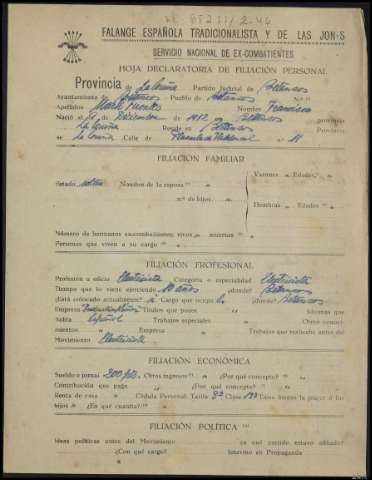 FALANGE ESPAÑOLA TRADICIONALISTA Y DE LAS JON-S
SERVICIO NACIONAL DE EX-COMBATIENTES
HOJA DECLARATORIA DE FILIACIÓN PERSONAL
Provincia de La Coruña Partido Judicial de Betanzos
Ayuntamiento de Betanzos Pueblo de Betanzos N.º
Apellidos Nombre Francisco
Nació el de Diciembre de 1912 Betanzos provincia
La Coruña Reside en Betanzos Provincia
La Coruña Calle de 11
FILIACIÓN FAMILIAR
Varones " Edades "
Estado soltero Nombre de la esposa "
n.º de hijos "
Hembras " Edades "
Número de hermanos excombatientes; vivos " muertos "
Personas que viven a su cargo "
FILIACIÓN PROFESIONAL
Profesión u oficio Electricista Categoría o especialidad Electricista
Tiempo que lo viene ejerciendo 10 años ¿dónde? Betanzos
¿Está colocado actualmente? si Cargo que ocupa ¿dónde? Betanzos
Empresa Títulos que posee " Idiomas que
habla Español Trabajos especiales " Otros conoci-
mientos " Empresa " Trabajos que realizaba antes del
Movimiento Electricista
FILIACIÓN ECONÓMICA
Sueldo o jornal 200 pts. Otros ingresos " ¿Por qué concepto? "
Contribución que paga " ¿Por qué concepto? "
Renta de casa " Cédula Personal Tarifa Clase Tiene bonos la pagar d
hijos " ¿En qué cuantía? "
FILIACIÓN POLÍTICA
Ideas políticas antes del Movimiento " en qué partido estuvo afiliado
¿Con qué cargo? Intervino en Propaganda